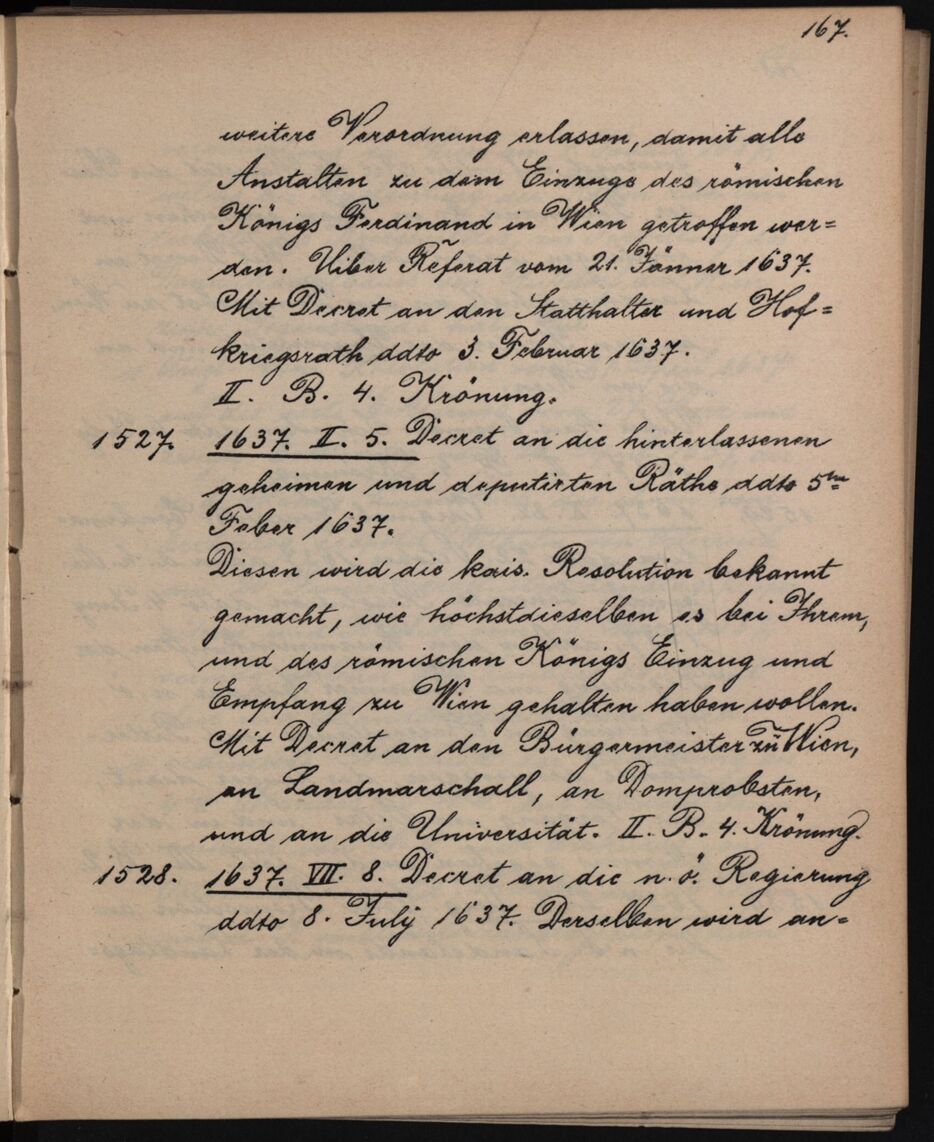 167.
weitere Verordnung erlassen, damit alle
Anstalten zu dem Einzuge des römischen
Königs Ferdinand in Wien getroffen wer=
den. Uiber Referat vom 21. Jänner 1637.
Mit Decret an den Statthalter und Hof=
kriegsrath ddto 3. Februar 1637.
II. B. 4. Krönung.
1527. 1637. II. 5. Decret an die hinterlassenen
geheimen und deputirten Räthe ddto 5ten
Feber 1637.
Diesen wird die kais. Resolution bekannt
gemacht, wie höchstdieselben es bei Ihrem,
und des römischen Königs Einzug und
Empfang zu Wien gehalten haben wollen.
Mit Decret an den Bürgermeister zu Wien,
an Landmarschall, an Domprobsten,
und an die Universität. II. B. 4. Krönung.
1528. 1637. VII. 8. Decret an die n. ö. Regierung
ddto 8. July 1637. Derselben wird an=